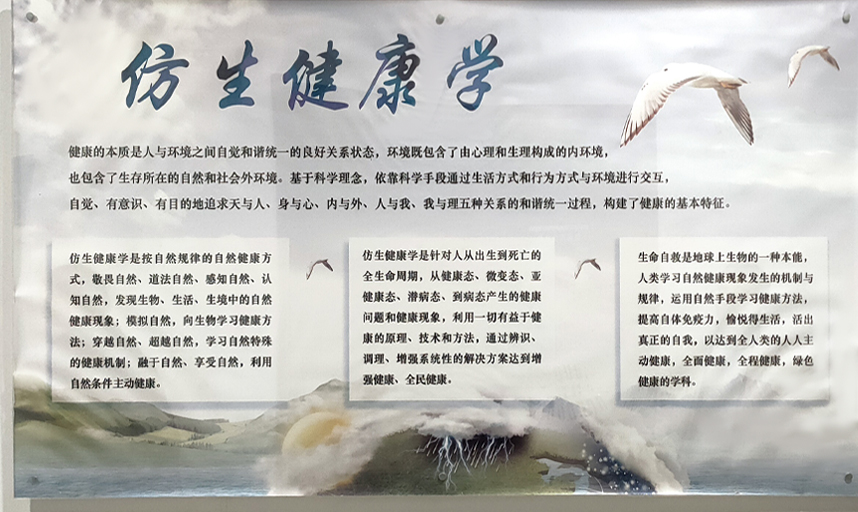 仿生健康学
健康的本质是人与环境之间自觉和谐统一的良好关系状态，环境既包含了由心理和生理构成的内环境，
也包含了生存所在的自然和社会外环境。基于科学理念，依靠科学手段通过生活方式和行为方式与环境进行交互，
自觉、有意识、有目的地追求天与人、身与心、内与外、人与我、我与理五种关系的和谐统一过程，构建了健康的基本特征。
仿生健康学是按自然规律的自然健康方
式，敬畏自然、道法自然、感知自然、认
知自然，发现生物、生活、生境中的自然
健康现象；模拟自然，向生物学习健康方
法；穿越自然、超越自然，学习自然特殊
的健康机制；融于自然、享受自然，利用
自然条件主动健康。
仿生健康学是针对人从出生到死亡的
全生命周期，从健康态、微变态、亚
健康态、潜病态、到病态产生的健康
问题和健康现象，利用一切有益于健
康的原理、技术和方法，通过辨识、
调理、增强系统性的解决方案达到增
强健康、全民健康。
生命自救是地球上生物的一种本能，
人类学习自然健康现象发生的机制与
规律，运用自然手段学习健康方法，
提高自体免疫力，愉悦得生活，活出
真正的自我，以达到全人类的人人主
动健康，全面健康，全程健康，绿色
健康的学科。